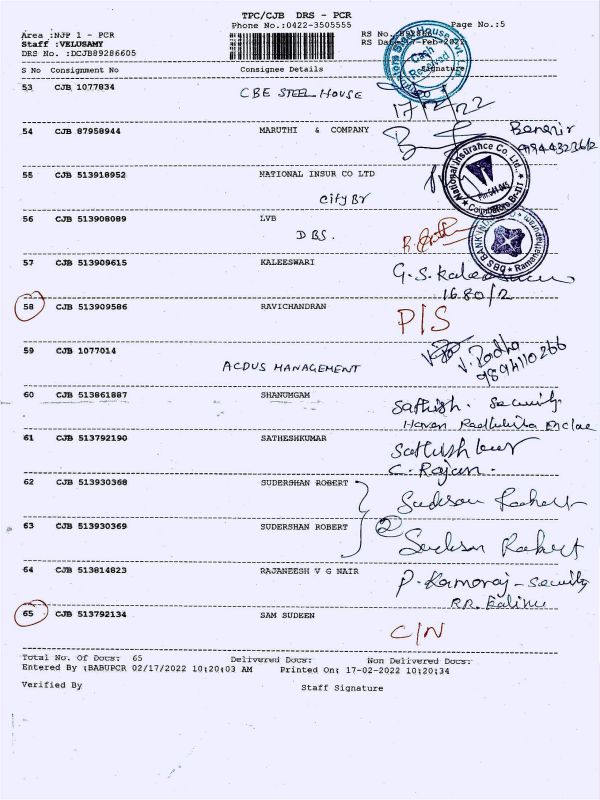 TPC/CJB DRS - PCR
Phone No.:0422-3505555
Page No.:5
Area :NJP 1 - PCR
Staff :VELUSAMY
DRS No. :DCJB89286605
RS No.
S No Consignment No Consignee Details Signature
Cash Received
53 CJB 1077834 CBE STEEL HOUSE
17/2/22
54 CJB 87958944 MARUTHI & COMPANY
55 CJB 513918952 NATIONAL INSUR CO LTD
City Br
National Insurance Co. Ltd.,
Coimbatore Br-
56 CJB 513908089 LVB
DBS.
DBS BANK
57 CJB 513909615 KALEESWARI
G.S.
1680/2
58 CJB 513909586 RAVICHANDRAN P/S
59 CJB 1077014
ACDUS MANAGEMENT
V. Radha
9894110266
60 CJB 513861887 SHANUMGAM Sathish. Security
61 CJB 513792190 SATHESHKUMAR
C. Rajan.
62 CJB 513930368 SUDERSHAN ROBERT
2
63 CJB 513930369 SUDERSHAN ROBERT
64 CJB 513814823 RAJANEESH V G NAIR P. Kamaraj - Security
65 CJB 513792134 SAM SUDEEN C/N
Total No. Of Docs: 65 Delivered Docs: Non Delivered Docs:
Entered By :BABUPCR 02/17/2022 10:20:03 AM Printed On: 17-02-2022 10:20:34
Verified By Staff Signature